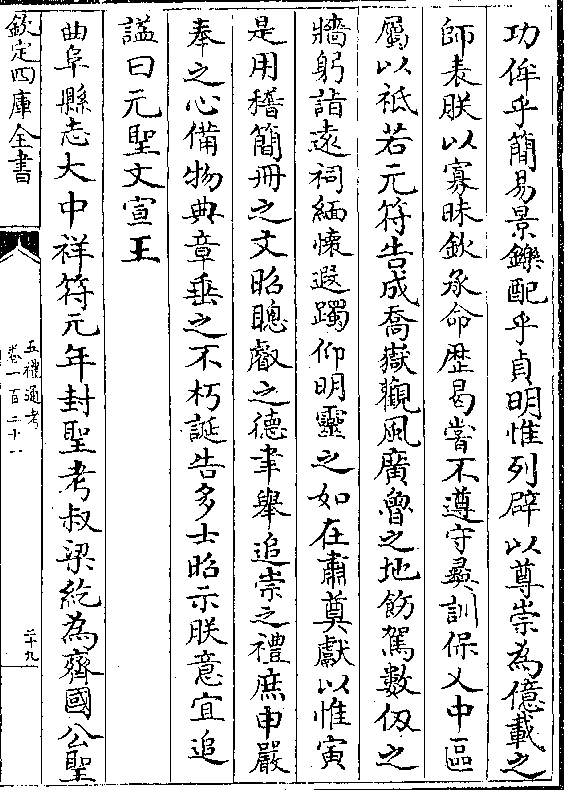 功侔乎簡易景鑠配乎貞明惟列辟以尊崇為億載之
師表朕以寡昧欽承命歴曷嘗不遵守彞訓保乂中區
屬以祗若元符告成喬嶽觀風廣魯之地飭駕數仭之
牆躬詣遠祠緬懷遐躅仰明靈之如在肅奠獻以惟寅
是用稽簡冊之文昭聰叡之德聿舉追崇之禮庶申嚴
奉之心備物典章垂之不朽誕告多士昭示朕意宜追
諡曰元聖文宣王
曲阜縣志大中祥符元年封聖考叔梁紇為齊國公聖
欽定四庫全書
五禮通考
卷一百二十一
二十九